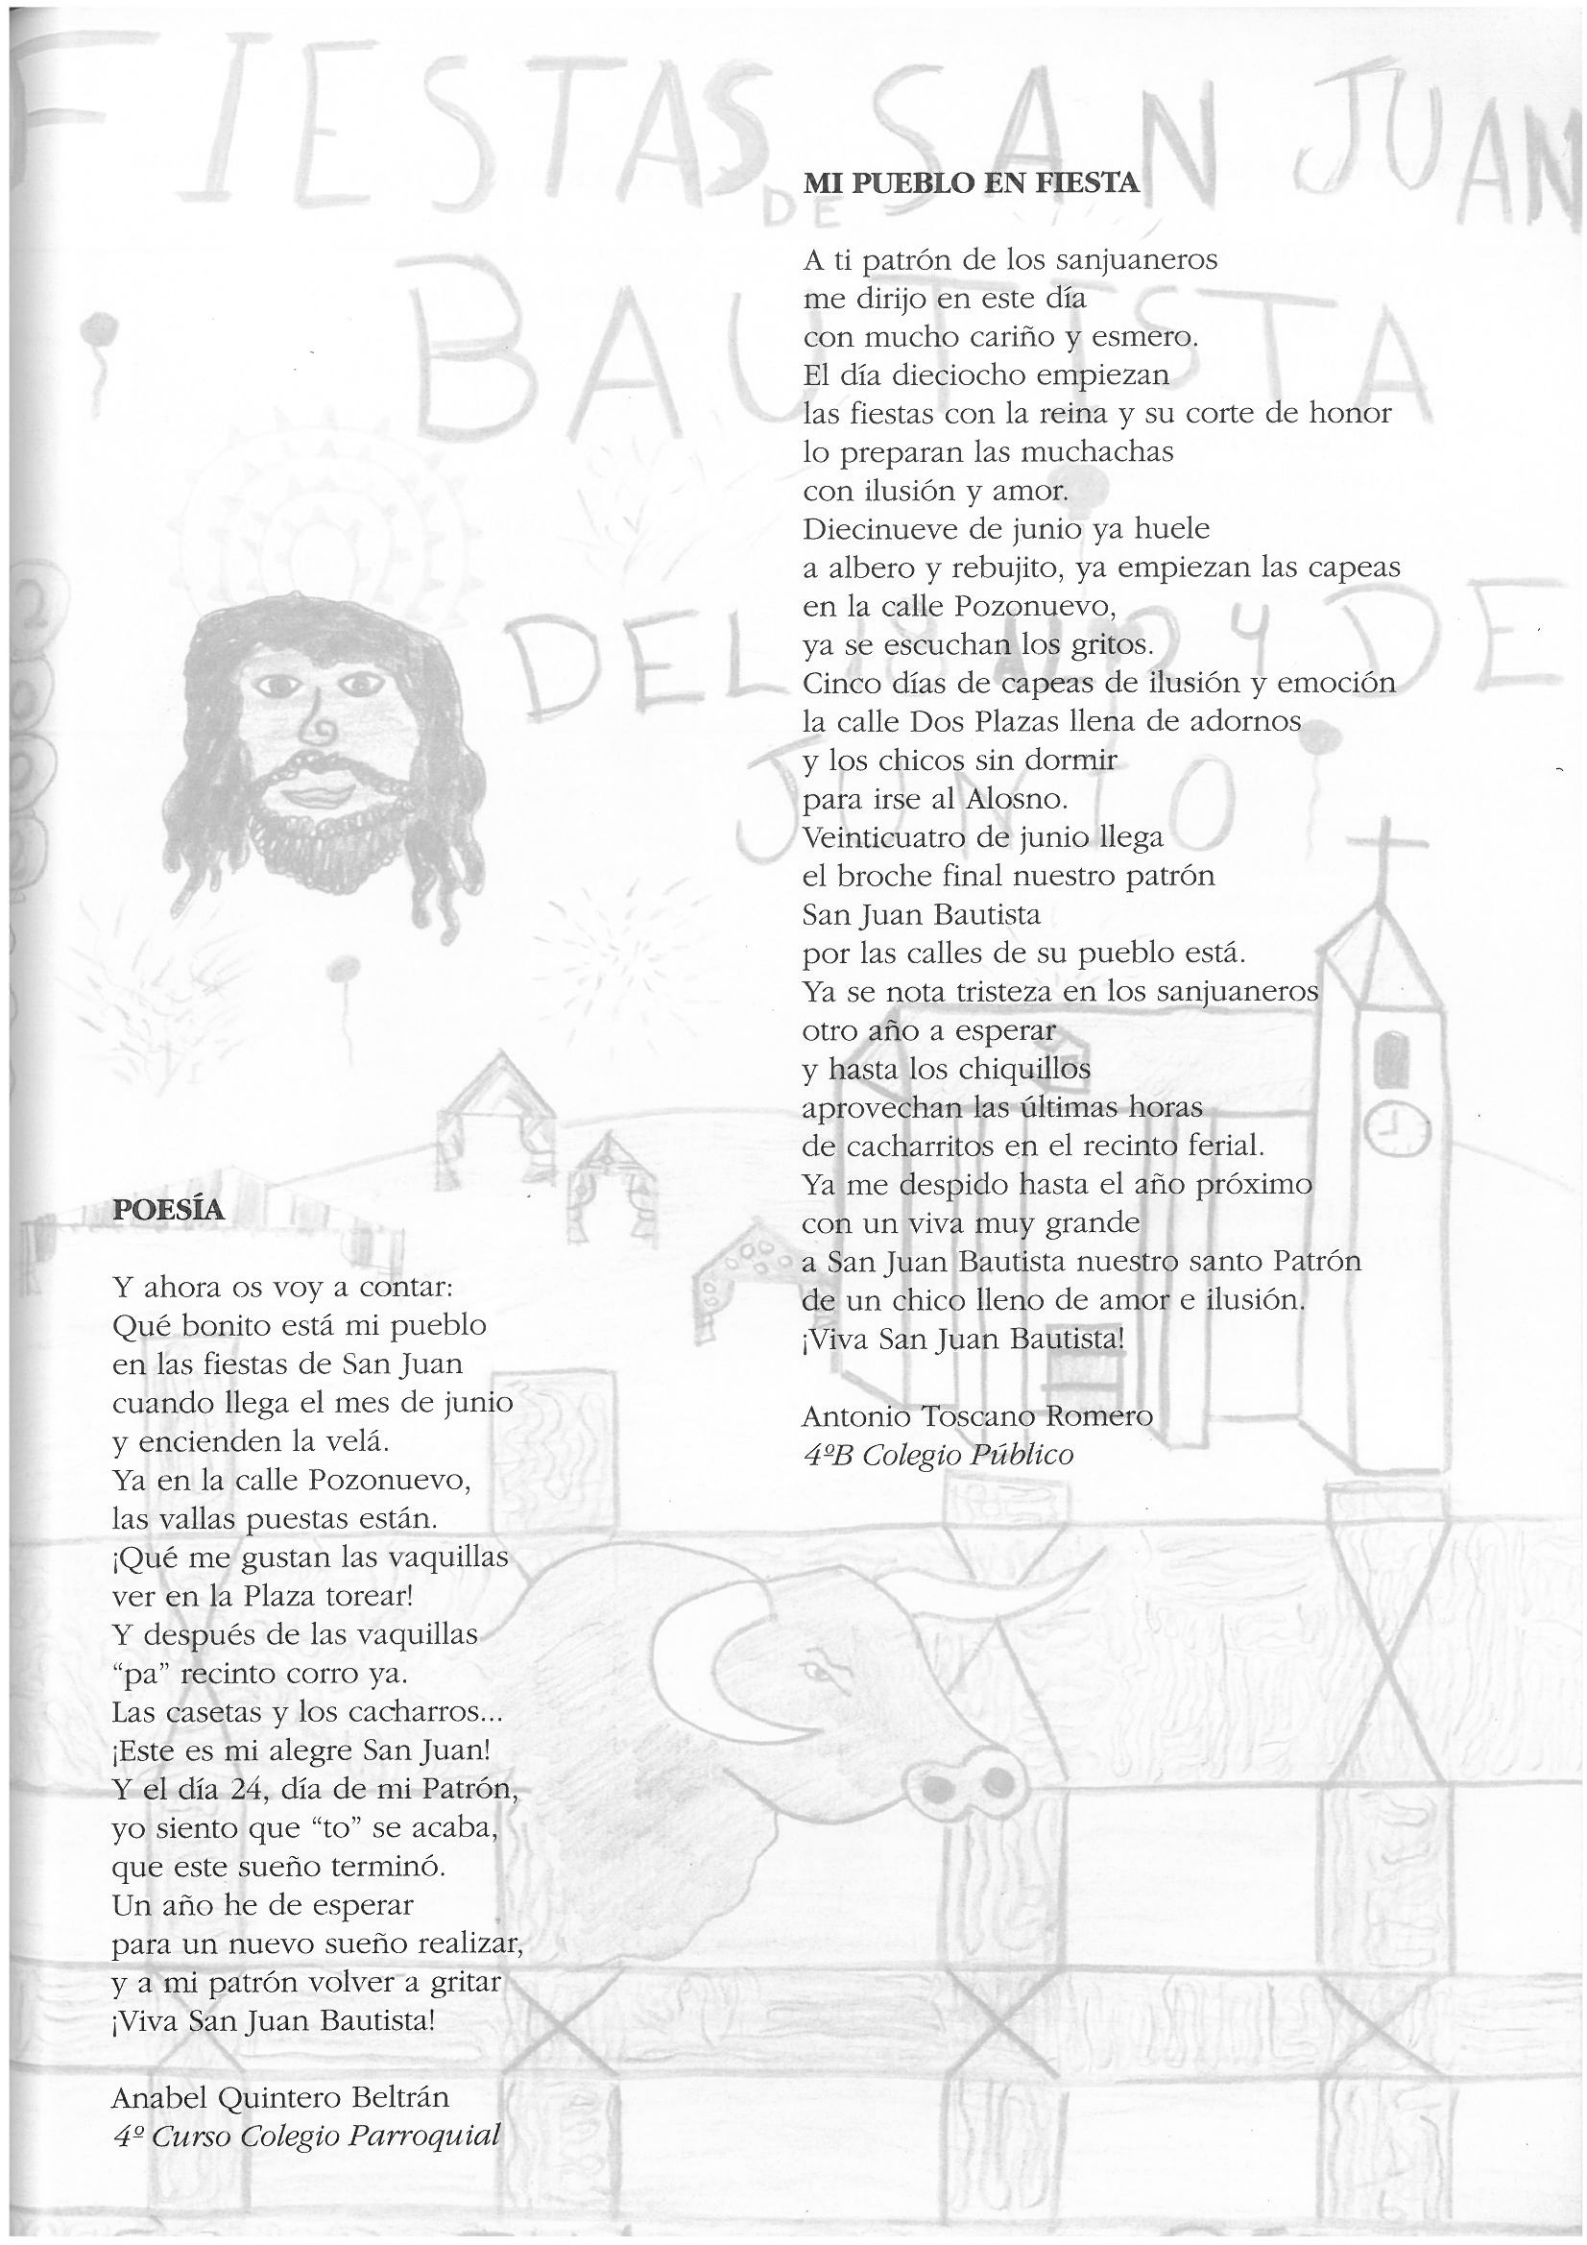 FIESTAS DE SAN JUAN
BAUTISTA
DEL 19 AL 24 DE
JUNIO
POESÍA
Y ahora os voy a contar:
Qué bonito está mi pueblo
en las fiestas de San Juan
cuando llega el mes de junio
y encienden la velá.
Ya en la calle Pozonuevo,
las vallas puestas están.
¡Qué me gustan las vaquillas
ver en la Plaza torear!
Y después de las vaquillas
“pa” recinto corro ya.
Las casetas y los cacharros...
¡Este es mi alegre San Juan!
Y el día 24, día de mi Patrón,
yo siento que “to” se acaba,
que este sueño terminó.
Un año he de esperar
para un nuevo sueño realizar,
y a mi patrón volver a gritar
¡Viva San Juan Bautista!
Anabel Quintero Beltrán
4º Curso Colegio Parroquial
MI PUEBLO EN FIESTA
A ti patrón de los sanjuaneros
me dirijo en este día
con mucho cariño y esmero.
El día dieciocho empiezan
las fiestas con la reina y su corte de honor
lo preparan las muchachas
con ilusión y amor.
Diecinueve de junio ya huele
a albero y rebujito, ya empiezan las capeas
en la calle Pozonuevo,
ya se escuchan los gritos.
Cinco días de capeas de ilusión y emoción
la calle Dos Plazas llena de adornos
y los chicos sin dormir
para irse al Alosno.
Veinticuatro de junio llega
el broche final nuestro patrón
San Juan Bautista
por las calles de su pueblo está.
Ya se nota tristeza en los sanjuaneros
otro año a esperar
y hasta los chiquillos
aprovechan las últimas horas
de cacharritos en el recinto ferial.
Ya me despido hasta el año próximo
con un viva muy grande
a San Juan Bautista nuestro santo Patrón
de un chico lleno de amor e ilusión.
¡Viva San Juan Bautista!
Antonio Toscano Romero
4ºB Colegio Público